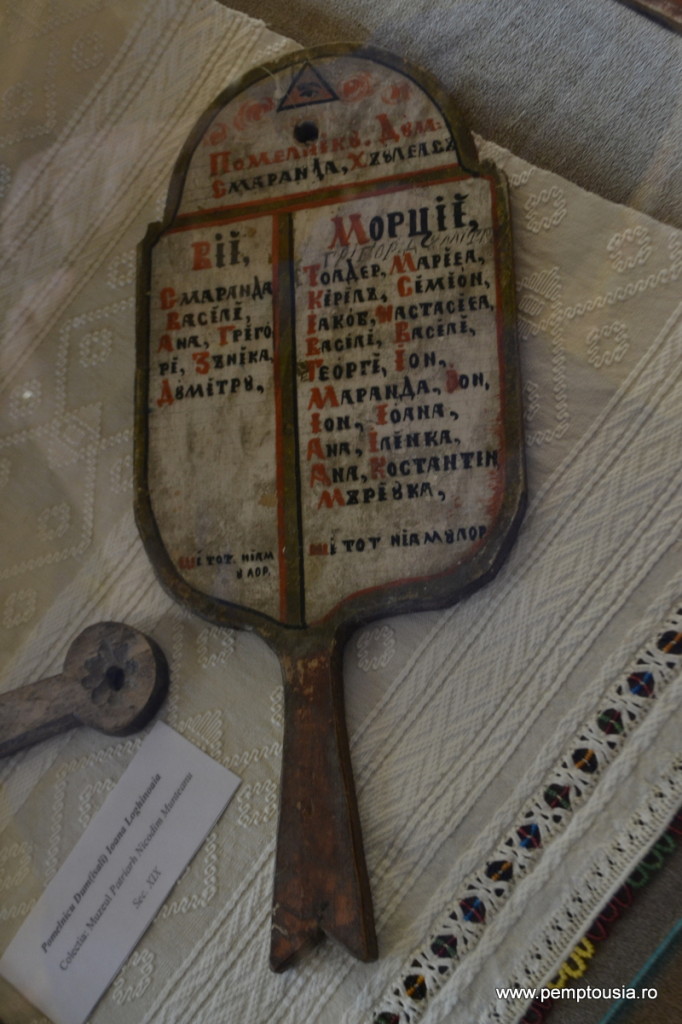 Помелнікꙋ. Двмі:
Смаранда, Хъвлеасъ
Вії,
Смаранда
Васілї,
Ана, Гріго
рї, Зъніка,
Дꙋмітрꙋ,
Ші тот. Нѣам
ꙋлор.
Морцїї,
Тоадер, Маріеа,
Кірілъ, Сіміон,
Іаков, Настасіеа,
Васілї, Васілї,
Георгї, Іон,
Маранда, Іон,
Іон, Іоана,
Ана, Ілѣнка,
Ана, Костантін
Мърѣꙋка,
Ші тот нѣамꙋлор
Pomelnicu Dum(isali) Ioana Loghinoaia
Colectia: Muzeul Patriarh Nicodim Munteanu
Sec. XIX
www.pemptousia.ro